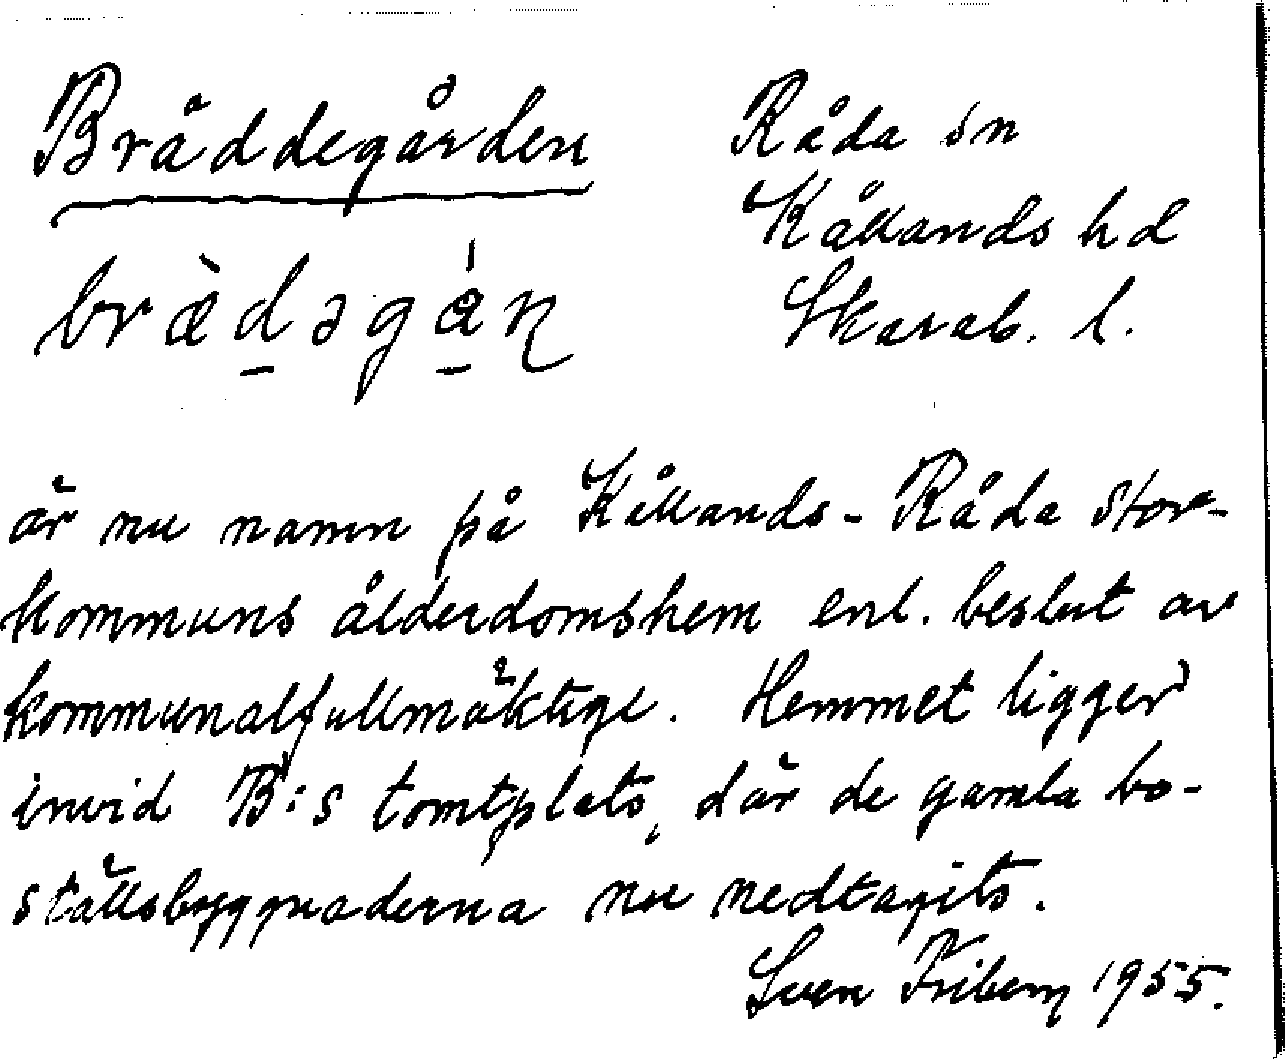 Bräddegården
Råda sn
Kållands hd
Skarab. l.
bræ̀dəgán
är nu namn på Kållands-Råda stor-
kommuns ålderdomshem enl. beslut av
kommunalfullmäktige. Hemmet ligger
invid B:s tomtplats, där de gamla bo-
ställsbyggnaderna nu nedtagits.
Sven Friberg 1955.